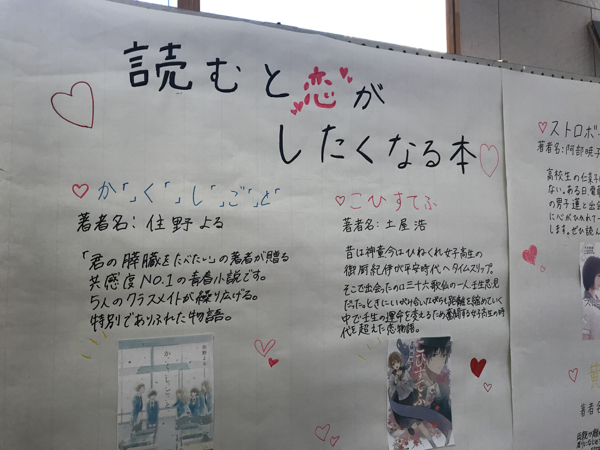 読むと恋が
したくなる本
か「」く「」し「」ご「」と「
著者名：住野よる
「君の膵臓をたべたい」の著者が贈る
共感度NO.1の青春小説です。
5人のクラスメイトが繰り広げる。
特別でありふれた物語。
か「」く「」し「」ご「」と「
こひすてふ
著者名：土屋浩
昔は神童今はひねくれ女子高生の
御厨紀伊が平安時代へタイムスリップ。
そこで出会ったのは三十六歌仙の一人、壬生忠見
だった。ときにいがみ合いながらも距離を縮めていく
中で壬生の運命を変えるため奮闘する女子高生の時
代を超えた恋物語。
こひすてふ
ストロボ
著者名：阿部暁子
高校生の仁
ない。ある日、
の男子蓮と出会
に心がひかれて
します。ぜひ読ん
著者名